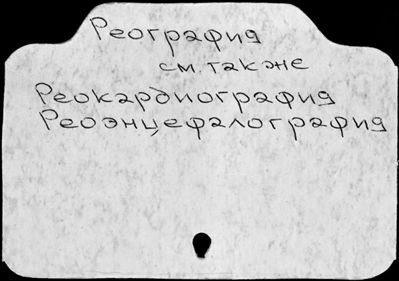 Реография
см. также
Реокардиография
Реоэнцефалография